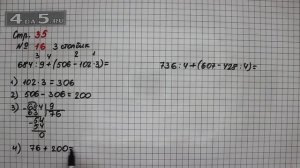 4.0.5.RU
Стр. 35
№ 16 3 столбик
3 4 2 1
684 : 9 + (506 - 102·3) =
736 : 4 + (607 - 428 : 4) =
1) 102·3 = 306
2) 506 - 306 = 200
3) 684 9
63 76
54
54
0
4) 76 + 200 =